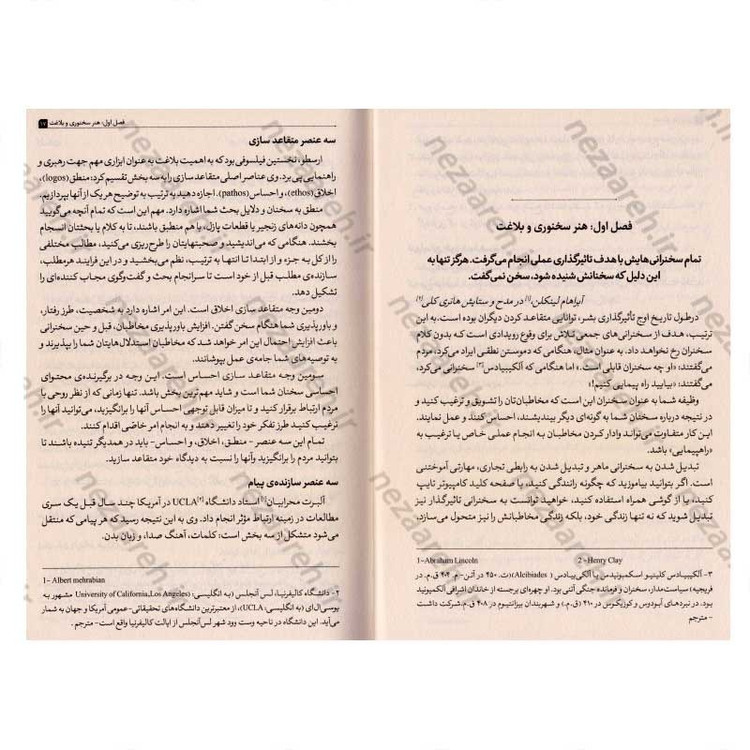 فصل اول: هنر سخنوری و بلاغت
تمام سخنرانی‌هایش با هدف تاثیرگذاری عملی انجام می‌گرفت. هرگز تنها به
این دلیل که سخنانش شنیده شود، سخن نمی‌گفت.
آبراهام لینکلن[1] در مدح و ستایش هانری کلی[2]
درطول تاریخ اوج تأثیرگذاری بشر، توانایی متقاعد کردن دیگران بوده است. به این
ترتیب، هدف از سخنرانی‌های جمعی تلاش برای وقوع رویدادی است که بدون کلام
سخنران رخ نخواهد داد. به عنوان مثال، هنگامی که دموستن نطقی ایراد می‌کرد، مردم
می‌گفتند: «او چه سخنران قابلی است.» اما هنگامی که آلکیبیادس[3] سخنرانی می‌کرد،
می‌گفتند: «بیایید راه پیمایی کنیم!»
وظیفه شما به عنوان سخنران این است که مخاطبان‌تان را تشویق و ترغیب کنید و
در نتیجه درباره سخنان شما به گونه‌ای دیگر بیندیشند، احساس کنند و عمل نمایند.
این کار متفاوت می‌تواند وادار کردن مخاطبان به انجام عملی خاص یا ترغیب به
«راهپیمایی» باشد.
تبدیل شدن به سخنرانی ماهر و تبدیل شدن به رابطی تجاری، مهارتی آموختنی
است. اگر بتوانید بیاموزید که چگونه رانندگی کنید، با صفحه کلید کامپیوتر تایپ
کنید، یا از گوشی همراه استفاده کنید، خواهید توانست به سخنرانی تاثیرگذار نیز
تبدیل شوید که نه تنها زندگی خود، بلکه زندگی مخاطبانش را نیز متحول می‌سازد.
1- Abraham Lincoln 2- Henry Clay
3- آلکیبیادس کلینیو اسکمبونیدس یا آلکی‌بیادس (Alcibiades)(ت. 450 در آتن- م. 404 ق.م. در
فریجیه) سیاست‌مدار، سخنران و فرمانده جنگی آتنی بود. او چهره‌ای برجسته از خاندان اشرافی آلکمیونید
بود. در نبردهای آبودوس و کوزیکوس در 410 (ق.م.) و شهربندان بیزانتیوم در 408 ق.م. شرکت داشت
- مترجم
فصل اول: هنر سخنوری و بلاغت 17
سه عنصر متقاعد سازی
ارسطو، نخستین فیلسوفی بود که به اهمیت بلاغت به عنوان ابزاری مهم جهت رهبری و
راهنمایی پی برد. وی عناصر اصلی متقاعد سازی را به سه بخش تقسیم کرد: منطق (logos)،
اخلاق (ethos)، و احساس (pathos). اجازه دهید به ترتیب به توضیح هر یک از آنها بپردازیم.
منطق به سخنان و دلایل بحث شما اشاره دارد. مهم این است که تمام آنچه می‌گویید
همچون دانه‌های زنجیر یا قطعات پازل، با هم منطبق باشند، تا به کلام یا بحثتان انسجام
بخشند. هنگامی که می‌اندیشید و صحبتهایتان را طرح‌ریزی می‌کنید، مطالب مختلفی
را از کل به جزء و از ابتدا تا انتها به ترتیب، نظم می‌بخشید و در این فرایند هر مطلب،
سازنده‌ی مطلب قبل از خود است تا سرانجام بحث و گفت‌وگوی مجاب کننده‌ای را
تشکیل دهد.
دومین وجه متقاعد سازی اخلاق است. این امر اشاره دارد به شخصیت، طرز رفتار،
و باورپذیری شما هنگام سخن گفتن. افزایش باورپذیری مخاطبان، قبل و حین سخنرانی
باعث افزایش احتمال این امر خواهد شد که مخاطبان استدلال‌هایتان شما را بپذیرند و
به توصیه‌های شما جامه‌ی عمل بپوشانند.
سومین وجه متقاعد سازی احساس است. این وجه در برگیرنده‌ی محتوای
احساسی سخنان شما است و شاید مهم‌ترین بخش باشد. تنها زمانی که از نظر روحی با
مردم ارتباط برقرار کنید و تا میزان قابل توجهی احساس آنها را برانگیزید، می‌توانید آنها را
ترغیب کنید طرز تفکر خود را تغییر دهند و به انجام امر خاصی اقدام کنند.
تمام این سه عنصر - منطق، اخلاق، و احساس- باید در همدیگر تنیده باشند تا
بتوانید مردم را برانگیزید و آنها را نسبت به دیدگاه خود متقاعد سازید.
سه عنصر سازنده‌ی پیام
آلبرت محرابیان[1] استاد دانشگاه UCLA[2] در آمریکا چند سال قبل یک سری
مطالعات در زمینه ارتباط مؤثر انجام داد. وی به این نتیجه رسید که هر پیامی که منتقل
می‌شود متشکل از سه بخش است: کلمات، آهنگ صدا، و زبان بدن.
1- Albert mehrabian
2- دانشگاه کالیفرنیا، لس آنجلس (به انگلیسی: University of California, Los Angeles) مشهور به
یوسی‌ال‌ای (به انگلیسی: UCLA)، از معتبرترین دانشگاه‌های تحقیقاتی-عمومی آمریکا و جهان به شمار
می‌آید. این دانشگاه در ناحیه وست وود شهر لس‌آنجلس از ایالت کالیفرنیا واقع است- مترجم
nezaareh.ir